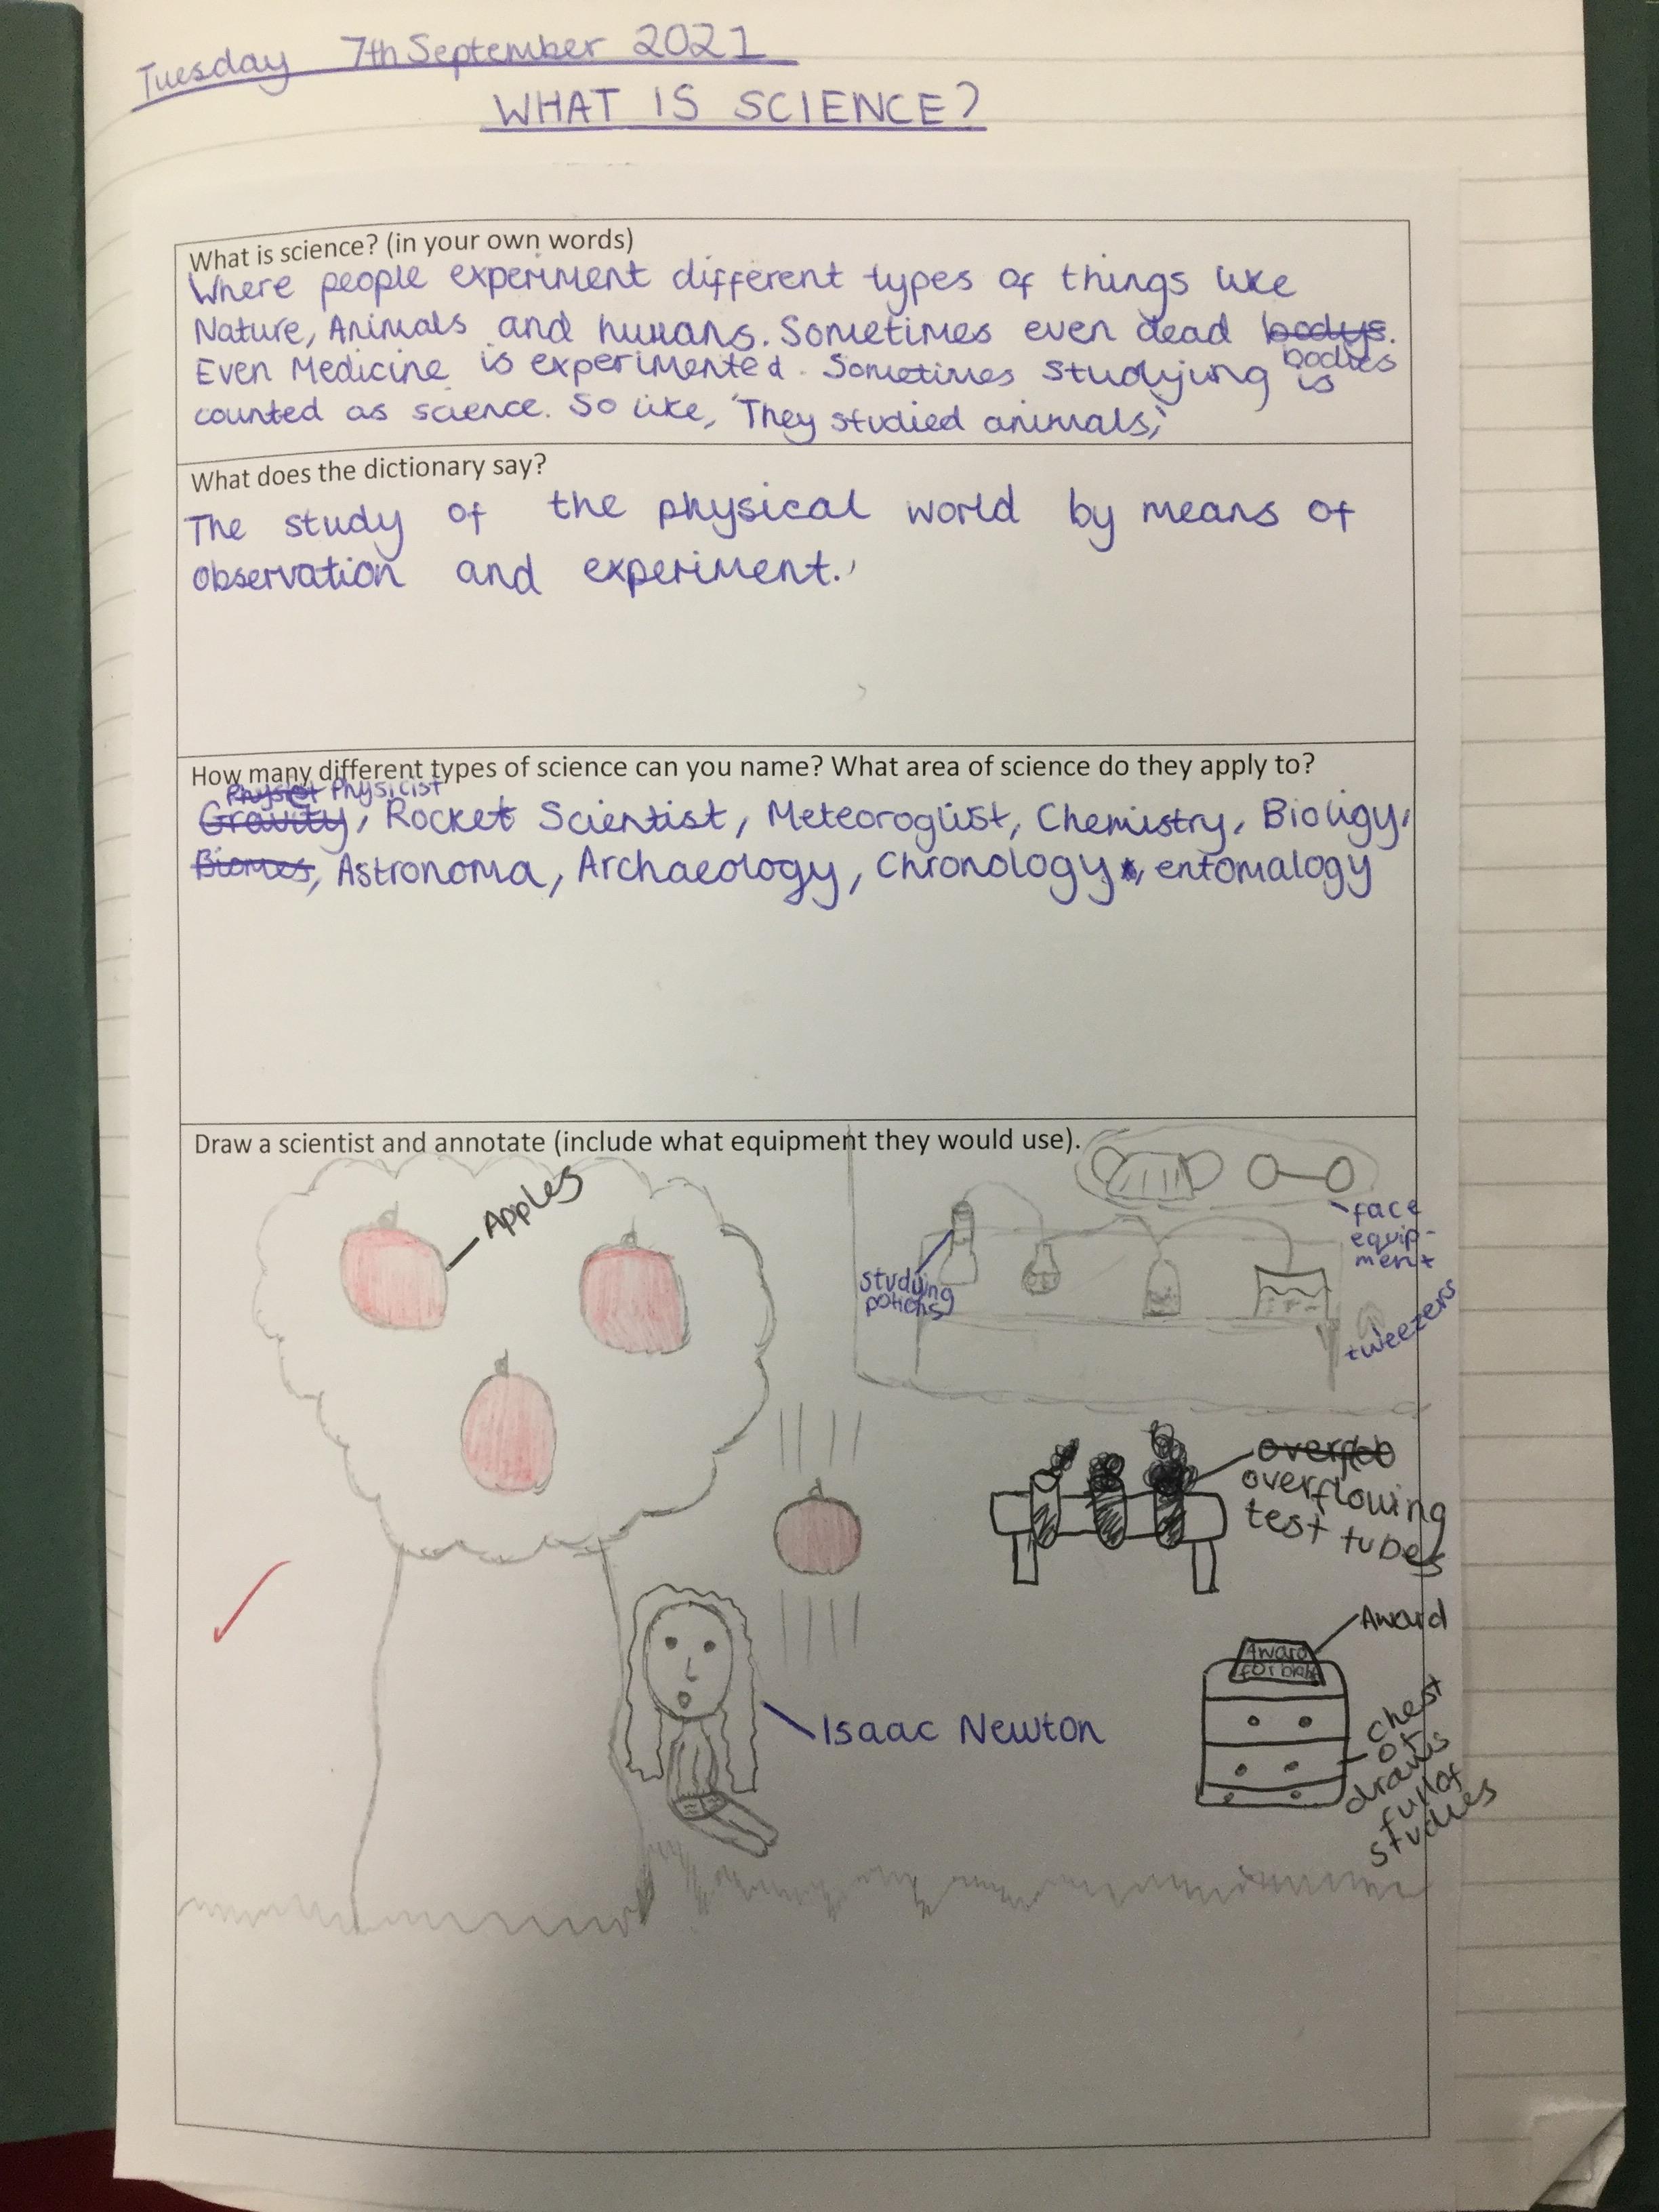 Tuesday 7th September 2021
WHAT IS SCIENCE?
What is science? (in your own words)
Where people experiment different types of things like
Nature, Animals and humans. Sometimes even dead bodys.
bodies
Even Medicine is experimented. Sometimes studying is
counted as science. So like, 'They studied animals,'
What does the dictionary say?
The study of the physical world by means of
observation and experiment.
How many different types of science can you name? What area of science do they apply to?
Physicist
Gravity, Rocket Scientist, Meteoroglist, Chemistry, Bioligy,
Biomes, Astronoma, Archaeology, Chronology, entomalogy
Draw a scientist and annotate (include what equipment they would use).
Apples
face
equip-
ment
studying
potions
tweezers
overflowing
test tubes
Award
Award
for
Isaac Newton
chest
of
draws
full of
studies